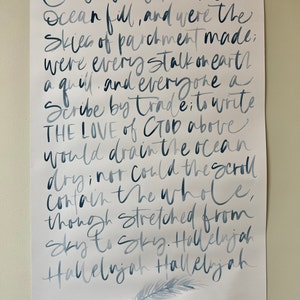 Ocean full, and were the
Skies of parchment made;
were every stalk on earth
a quill, and everyone a
Scribe by trade; to write
THE LOVE of GOD above
would drain the ocean
dry; nor could the scroll
contain the whole,
though stretched from
Sky to Sky. Hallelujah
Hallelujah Hallelujah